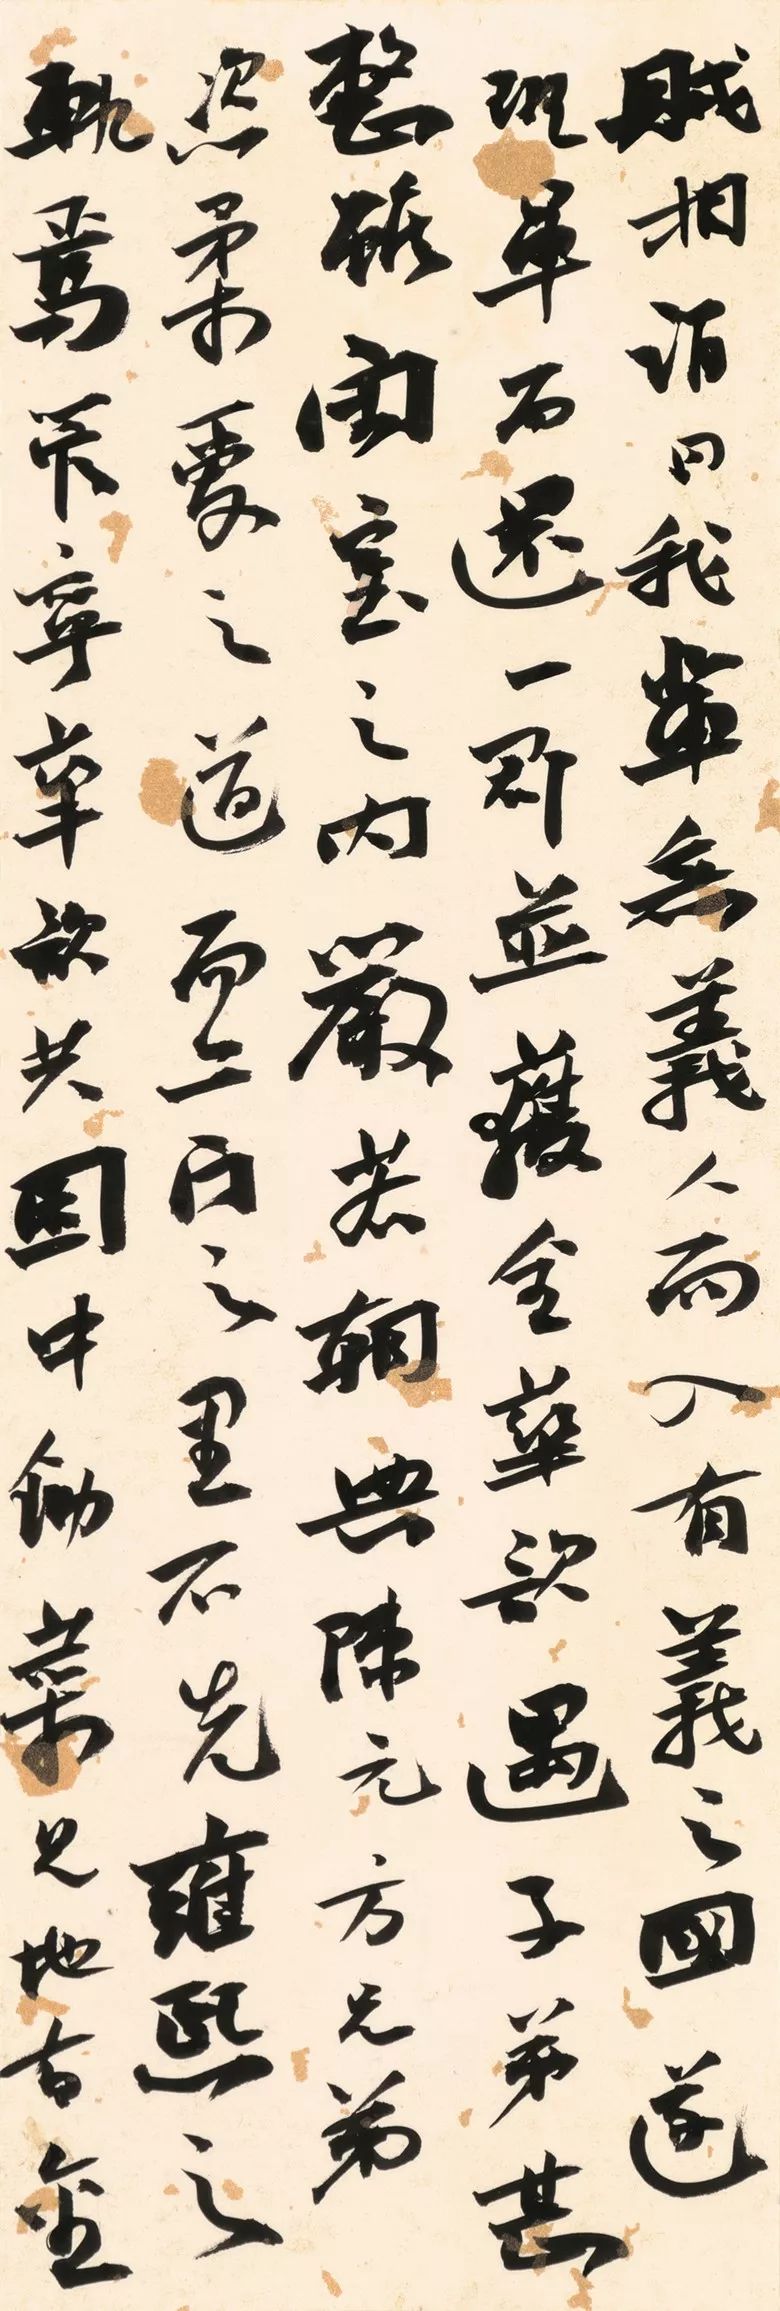 賊相謂曰我輩無義人而入有義之國遂
班軍而還一郡並獲全華歆遇子弟甚
整雖閑室之內嚴若朝典陳元方兄弟
恣柔愛之道而二門之里不失雍熙之
軌焉管寧華歆共園中鋤菜見地有金